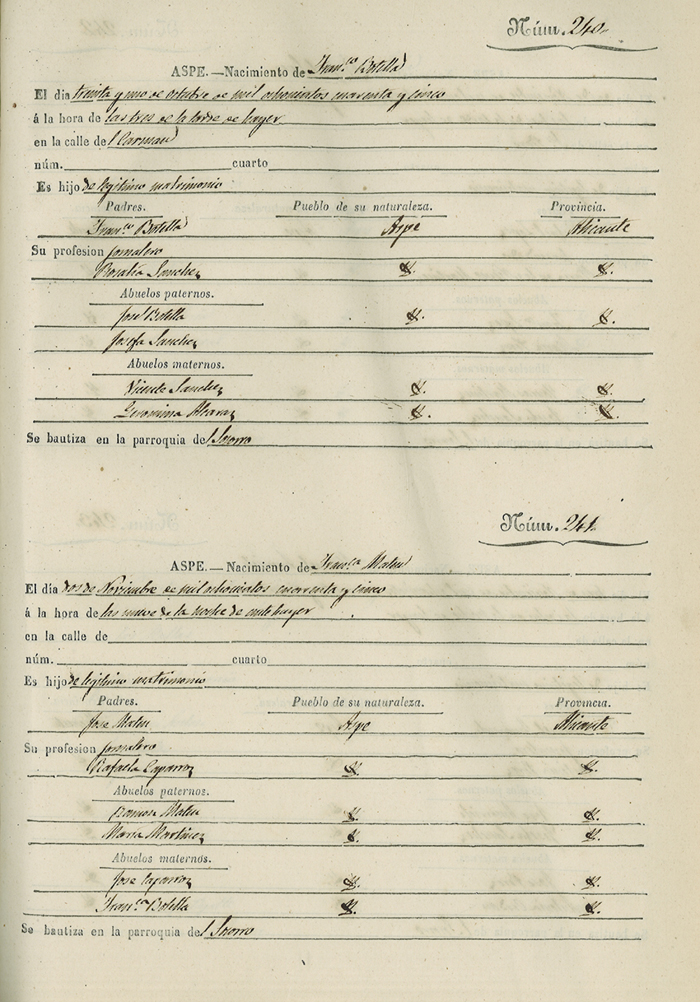 Núm. 240.
ASPE.—Nacimiento de Fran.co Botella
El dia treinta y uno de octubre de mil ochocientos cuarenta y cinco
á la hora de las tres de la tarde de hayer
en la calle del Carmen
núm. cuarto
Es hijo de legitimo matrimonio
Padres. Pueblo de su naturaleza. Provincia.
Fran.co Botella Aspe Alicante
Su profesion jornalero
Rosalia Sanchez
Abuelos paternos.
José Botella
Josefa Sanchez
Abuelos maternos.
Vicente Sanchez
Geronima
Se bautiza en la parroquia del
Núm. 241.
ASPE.—Nacimiento de Fran.ca Mateu
El día dos de Noviembre de mil ochocientos cuarenta y cinco
á la hora de las nueve de la noche de antehayer
en la calle de
núm. cuarto
Es hijo de legitimo matrimonio
Padres. Pueblo de su naturaleza. Provincia.
Jose Mateu Aspe Alicante
Su profesion jornalero
Rafaela Caparros
Abuelos paternos.
Ramon Mateu
Maria Martinez
Abuelos maternos.
Jose Caparros
Fran.ca Botella
Se bautiza en la parroquia del